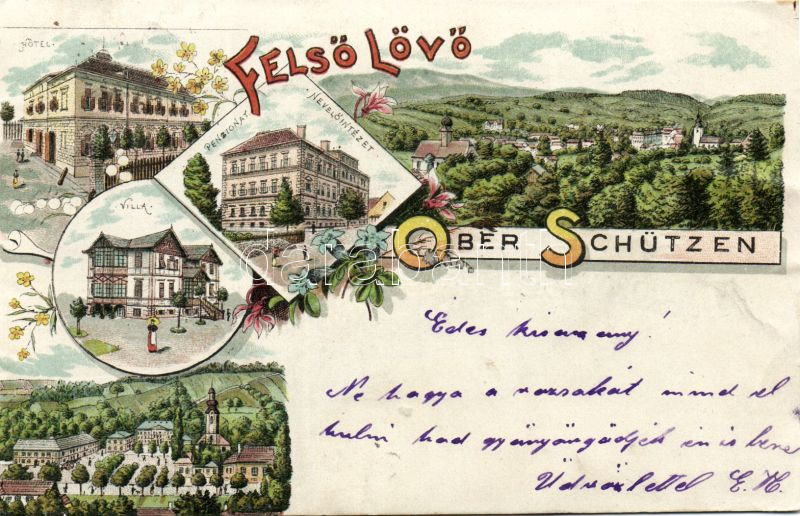 HÔTEL.
FELSŐ LÖVŐ
PENZIONÁT
NEVELŐINTÉZET
VILLA.
OBER SCHÜTZEN
darabanth
Edes kisasszony!
Ne hagya a rozsakát mind el
hulni had gyönyörgödjék én is
Üdvözlettel E. H.